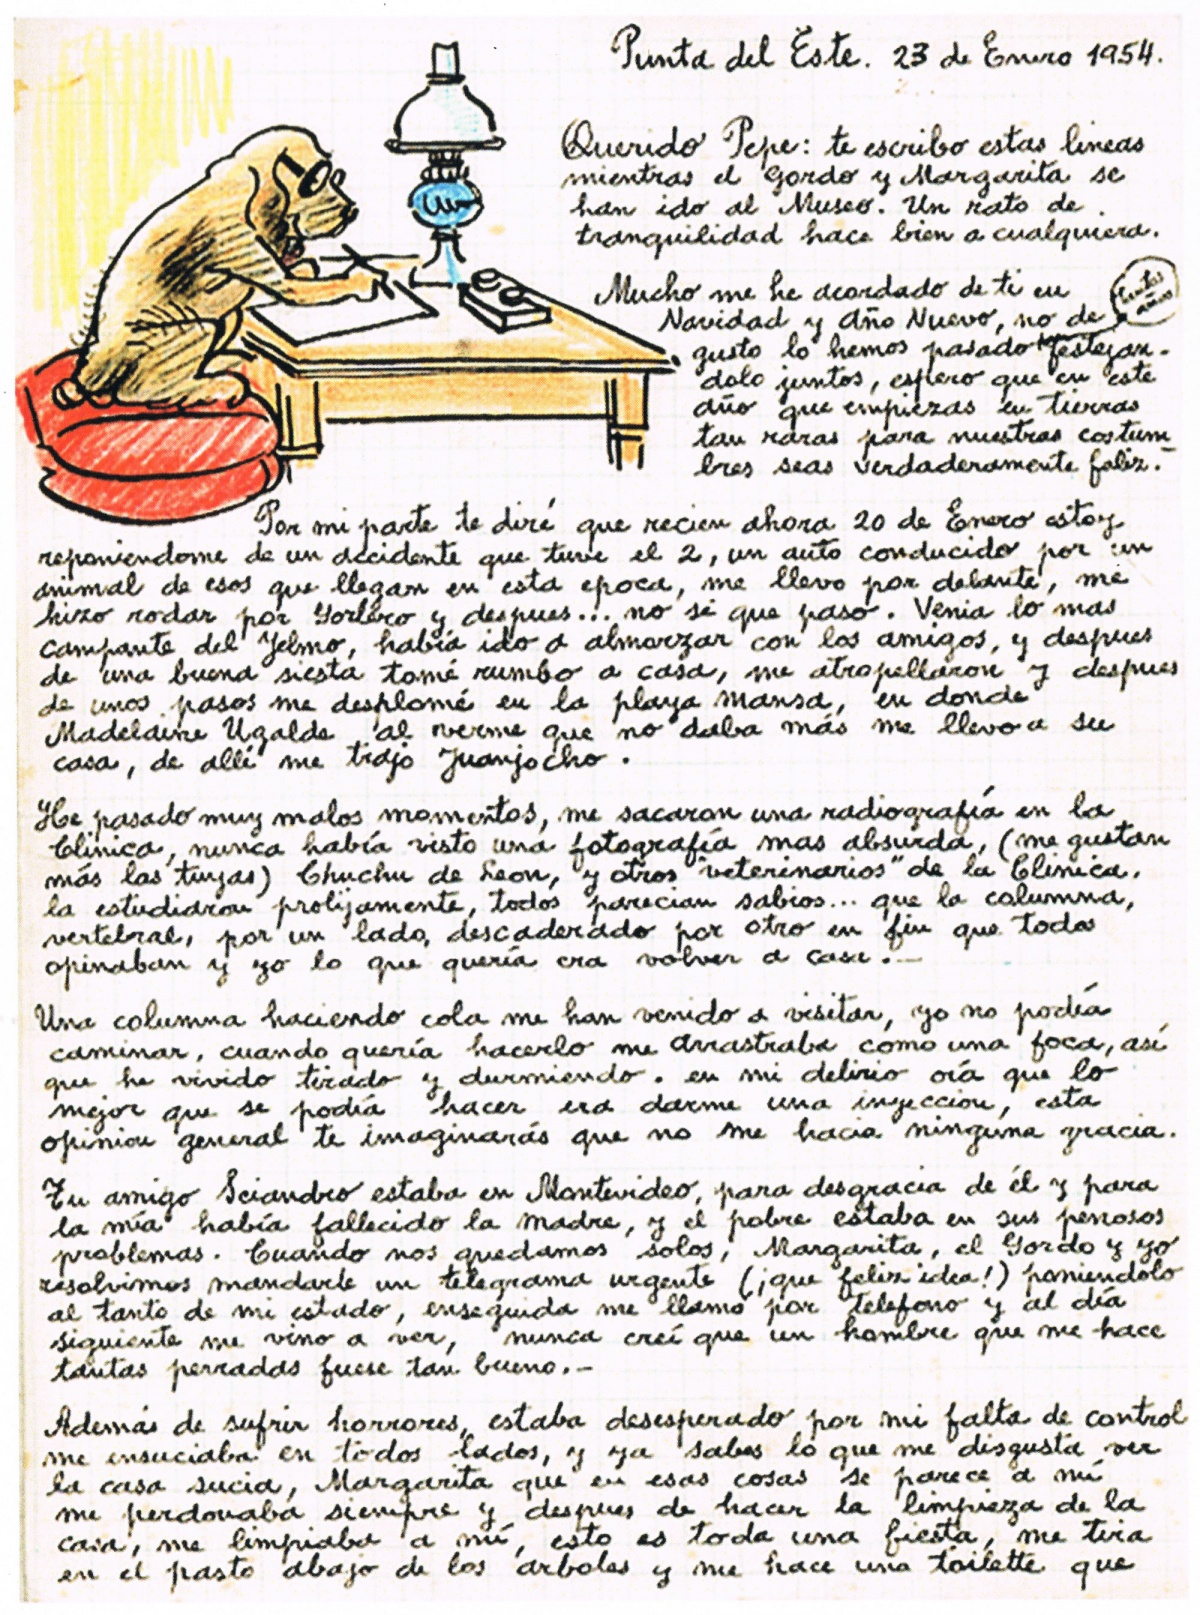 Punta del Este. 23 de Enero 1954.
Querido Pepe: te escribo estas lineas
mientras el Gordo y Margarita se
han ido al Museo. Un rato de
tranquilidad hace bien a cualquiera.
Mucho me he acordado de ti en
Navidad y Año Nuevo, no de
tantos años
gusto lo hemos pasado festejan-
dolo juntos, espero que en este
año que empiezas en tierras
tan raras para nuestras costum
bres seas verdaderamente feliz.-
Por mi parte te diré que recien ahora 20 de Enero estoy
reponiendome de un accidente que tuve el 2, un auto conducido por un
animal de esos que llegan en esta epoca, me llevo por delante, me
hizo rodar por Gorlero y despues... no sé que paso. Venia lo mas
campante del Jelmo, había ido a almorzar con los amigos, y despues
de una buena siesta tomé rumbo a casa, me atropellaron y despues
de unos pasos me desplomé en la playa mansa, en donde
Madelaine Ugalde al verme que no daba más me llevo a su
casa, de allí me trajo Juanjocho.
He pasado muy malos momentos, me sacaron una radiografía en la
Clinica, nunca había visto una fotografía mas absurda, (me gustan
más las tuyas) Chuchu de Leon, y otros "veterinarios" de la Clinica,
la estudiaron prolijamente, todos parecian sabios... que la columna,
vertebral, por un lado, descaderado por otro en fin que todos
opinaban y yo lo que quería era volver a casa.-
Una columna haciendo cola me han venido a visitar, yo no podía
caminar, cuando quería hacerlo me arrastraba como una foca, así
que he vivido tirado y durmiendo. en mi delirio oía que lo
mejor que se podía hacer era darme una inyeccion, esta
opinion general te imaginarás que no me hacia ninguna gracia.
Tu amigo Sciandro estaba en Montevideo, para desgracia de él y para
la mía había fallecido la madre, y el pobre estaba en sus penosos
problemas. Cuando nos quedamos solos, Margarita, el Gordo y yo
resolvimos mandarle un telegrama urgente (¡que feliz idea!) poniendolo
al tanto de mi estado, enseguida me llamó por telefono y al día
siguiente me vino a ver, nunca creí que un hombre que me hace
tantas perradas fuese tan bueno.-
Además de sufrir horrores, estaba desesperado por mi falta de control
me ensuciaba en todos lados, y ya sabes lo que me disgusta ver
la casa sucia, Margarita que en esas cosas se parece a mí
me perdonaba siempre y despues de hacer la limpieza de la
casa, me limpiaba a mí, esto es toda una fiesta, me tira
en el pasto abajo de los árboles y me hace una toilette que